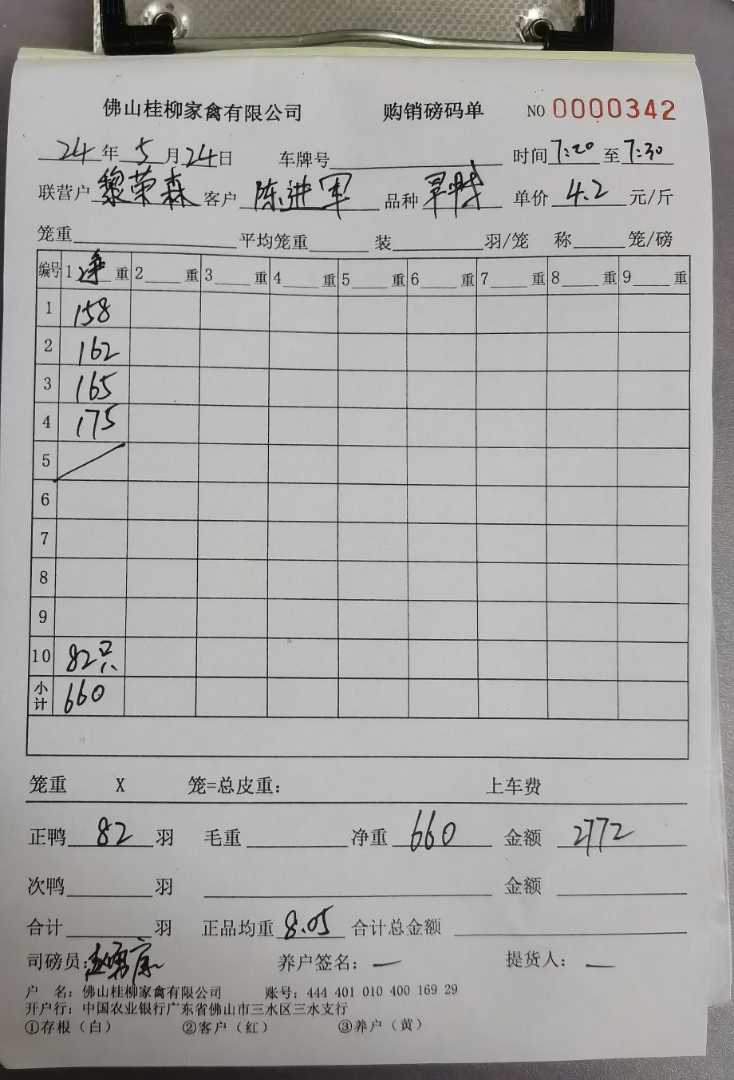 佛山桂柳家禽有限公司 购销磅码单 NO 0000342
24年5月24日 车牌号 时间7:20至7:30
联营户 黎荣森 客户 陈进军 品种 单价 4.2 元/斤
笼重 平均笼重 装 羽/笼 称 笼/磅
编号 1 净 重 2 重 3 重 4 重 5 重 6 重 7 重 8 重 9 重
1 158
2 162
3 165
4 175
5
6
7
8
9
10 82只
小计 660
笼重 X 笼=总皮重: 上车费
正鸭 82 羽 毛重 净重 660 金额 2772
次鸭 羽 金额
合计 羽 正品均重 8.05 合计总金额
司磅员: 养户签名: — 提货人: —
户 名: 佛山桂柳家禽有限公司 账号: 444 401 010 400 169 29
开户行: 中国农业银行广东省佛山市三水区三水支行
①存根(白) ②客户(红) ③养户(黄)